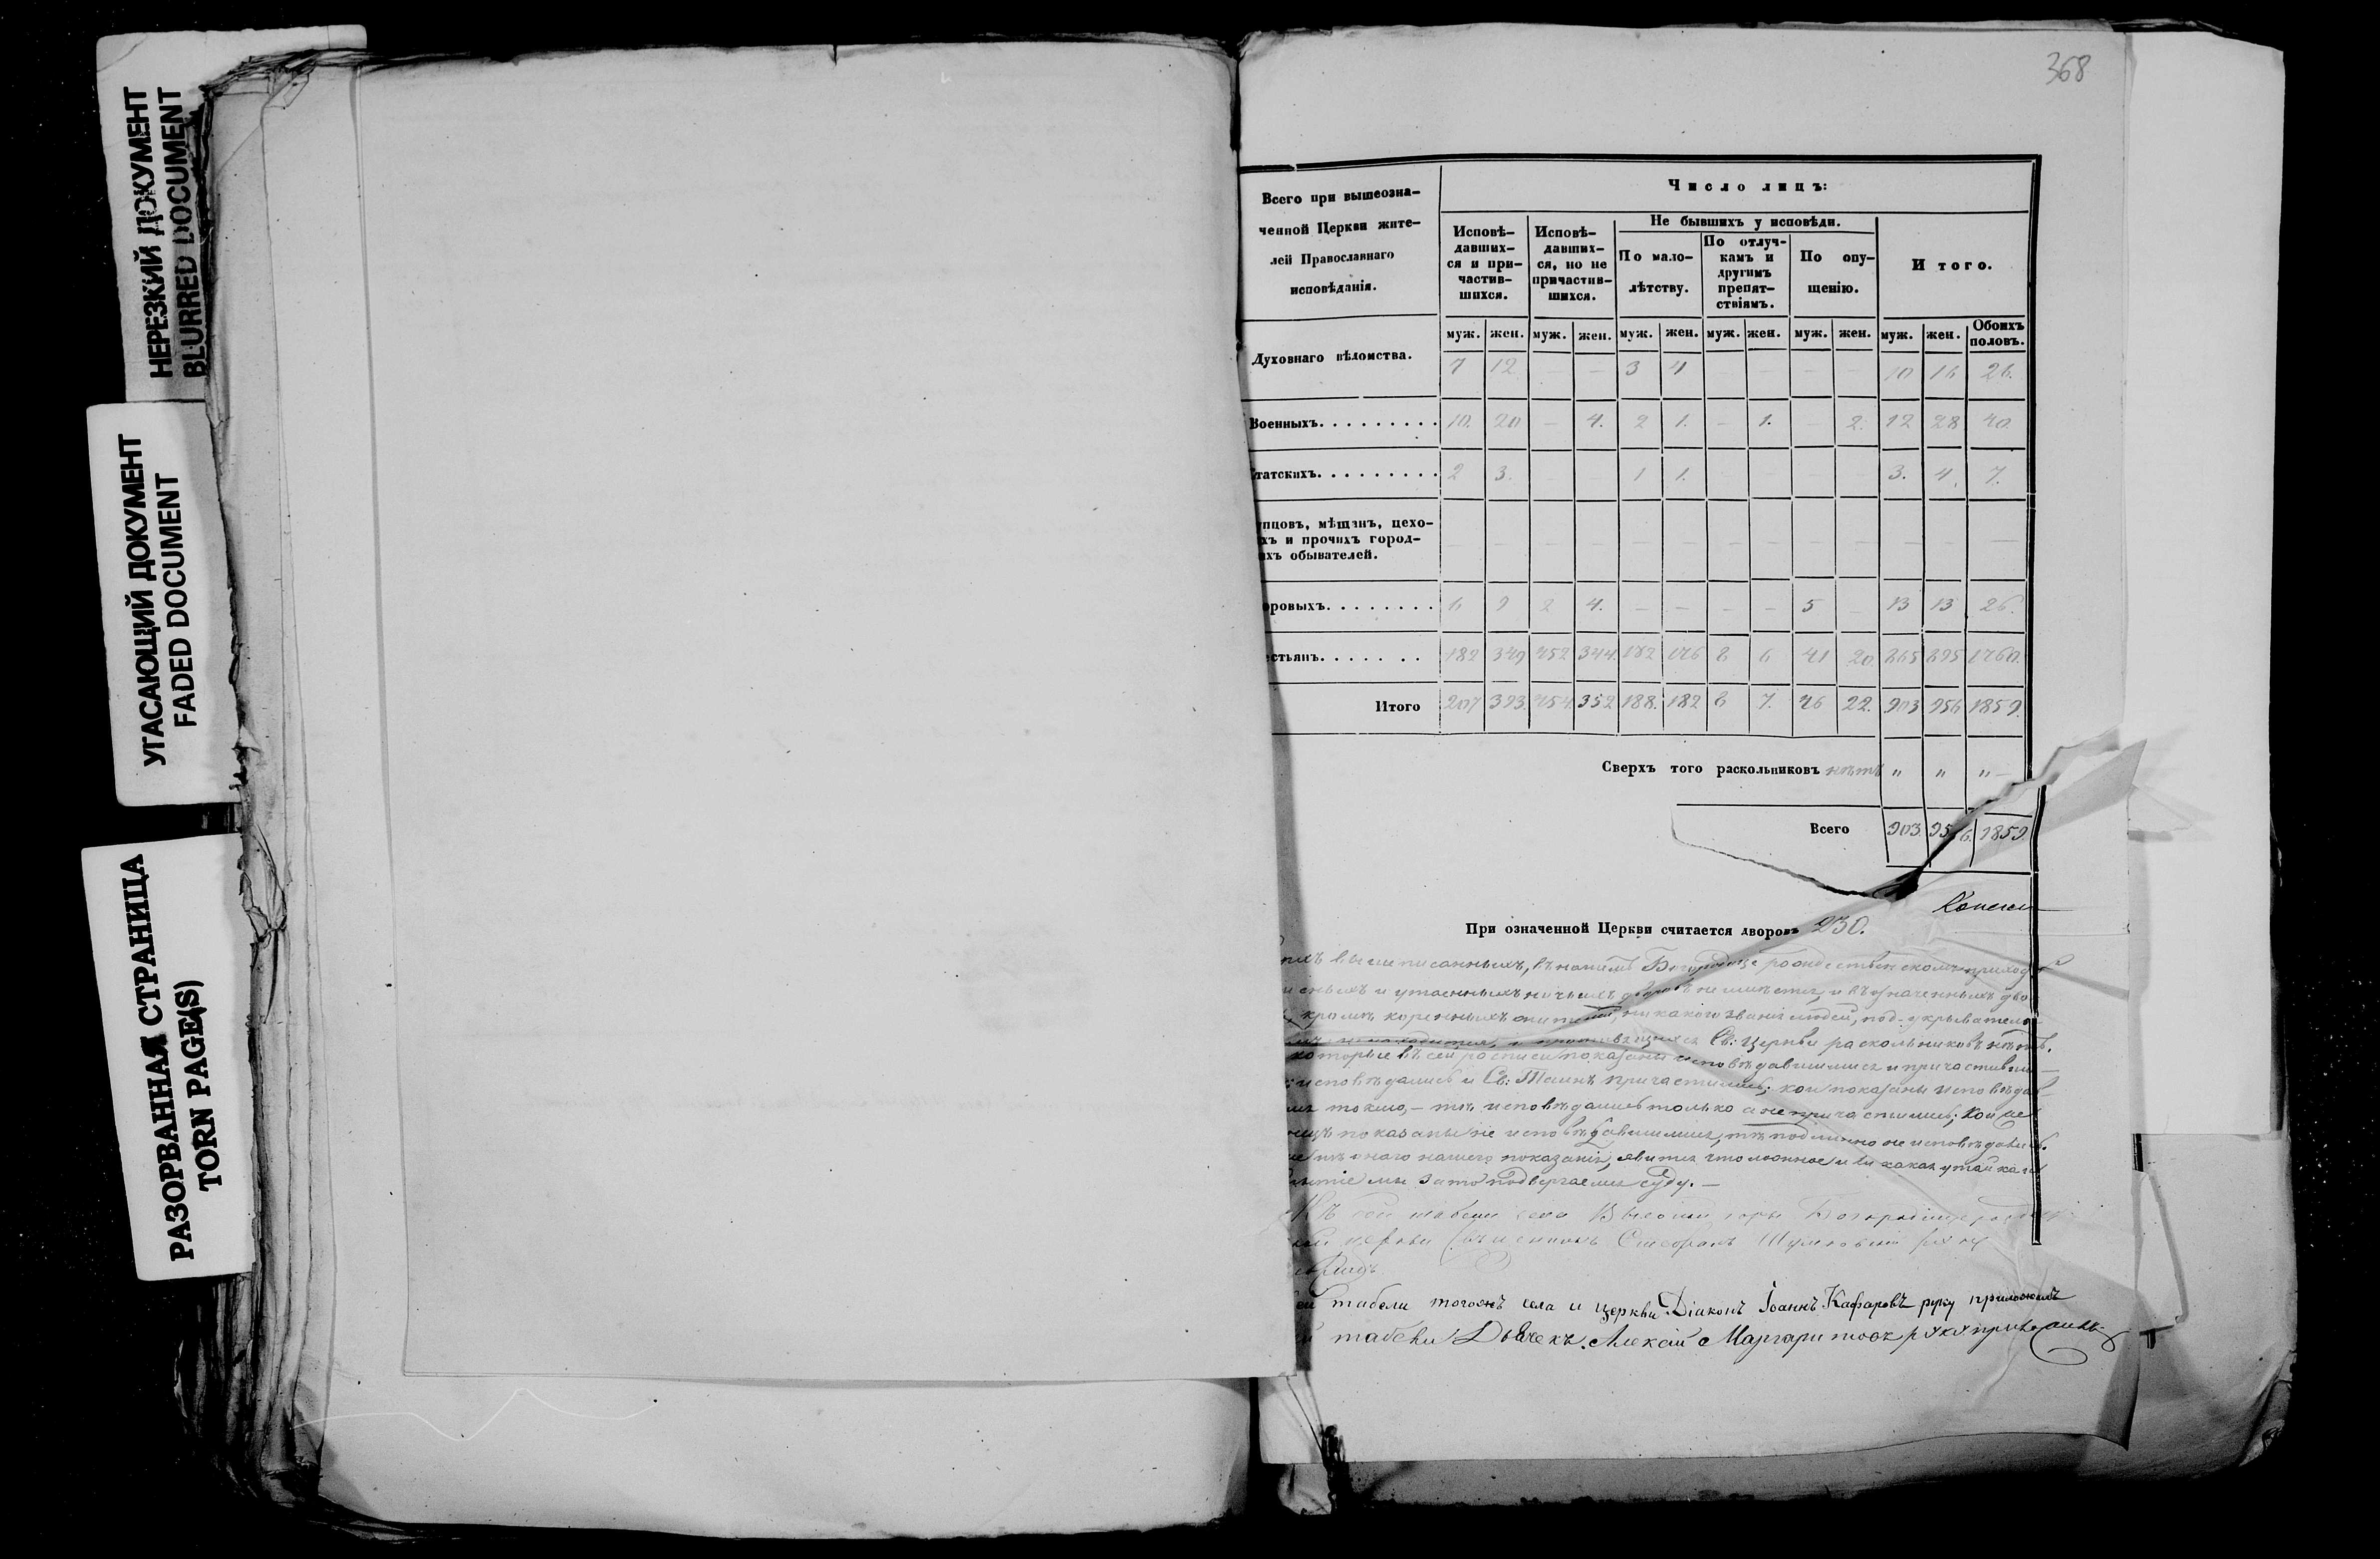 НЕРЕЗКИЙ ДОКУМЕНТ
BLURRED DOCUMENT
УГАСАЮЩИЙ ДОКУМЕНТ
FADED DOCUMENT
РАЗОРВАННАЯ СТРАНИЦА
TORN PAGE(S)
368
Всего при вышеозна-
ченной Церкви жите-
лей Православнаго
исповѣданія.
Число лицъ:
Исповѣ-
давших-
ся и при-
частив-
шихся.
Исповѣ-
давших-
ся, но не
причастив-
шихся.
Не бывшихъ у исповѣди.
По мало-
лѣтству.
По отлуч-
камъ и
другимъ
препят-
ствіямъ.
По опу-
щенію.
Итого.
муж. жен. муж. жен. муж. жен. муж. жен. муж. жен. муж. жен. Обоихъ половъ.
Духовнаго вѣдомства. 7 12 — — 3 4 — — — — 10 16 26.
Военныхъ. 10. 20 — 4. 2 1. — 1. — 2. 12 28 40
татскихъ. 2 3. — — 1 1. — — — — 3. 4. 7.
пцовъ, мѣщанъ, цехо-
хъ и прочихъ город-
ихъ обывателей.
оровыхъ. 6 9 2 4. — — — — 5 — 13 13 26.
стьянъ. 182 349 452 344. 182 176 8 6 41 20. 865 895 1760.
Итого 207 393. 454 352 188. 182 8 7. 46 22. 903 956 1859.
Сверхъ того раскольниковъ нѣтъ " " " —
Всего 903. 956. 1859
При означенной Церкви считается дворовъ 230.
вышеписанныхъ, въ нашемъ Богородице рождественскомъ приходѣ
и утаенныхъ ничьихъ дворовъ не имѣется, и въ означенныхъ дво
кромѣ коренныхъ жителей, никакого званія людей, под-укрыватель
Св: Церкви раскольниковъ нѣтъ.
которые въ сей росписи показаны исповѣдавшимися и причастивши
исповѣдались и Св: Таинъ причастились; кои показаны исповѣдав
токмо, — тѣ исповѣдались только а не причастились; Кои же
показаны не исповѣдавшимися, тѣ подлинно не исповѣдались.
онаго нашего показанія, явится что ложное или какая утайка и
мы за то подвергаемся суду. —
сей табели села Высокой горы
церкви Священникъ
табели тогожъ села и церкви Діаконъ Іоаннъ Кафаровъ руку приложилъ
табели Дьячекъ Алексѣй Маргаритовъ руку приложилъ